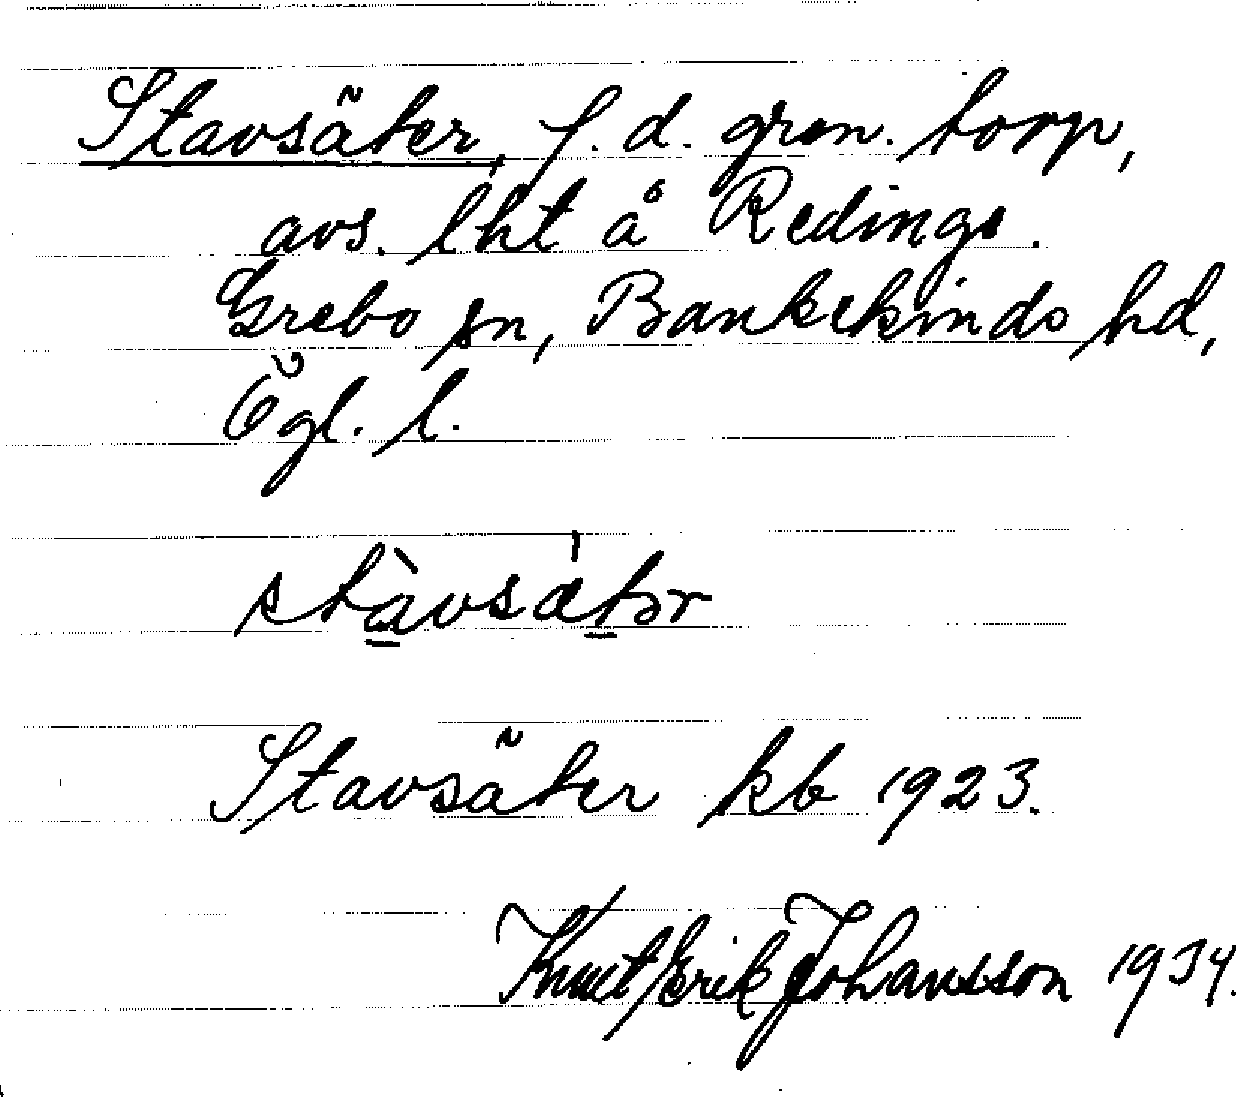 Stavsäter, f. d. gren. torp,
avs. lht å Redinge.
Grebo sn, Bankekinds hd,
Ögl. l.
stàvsätər
Stavsäter kb 1923.
Knut Erik Johansson 1934.